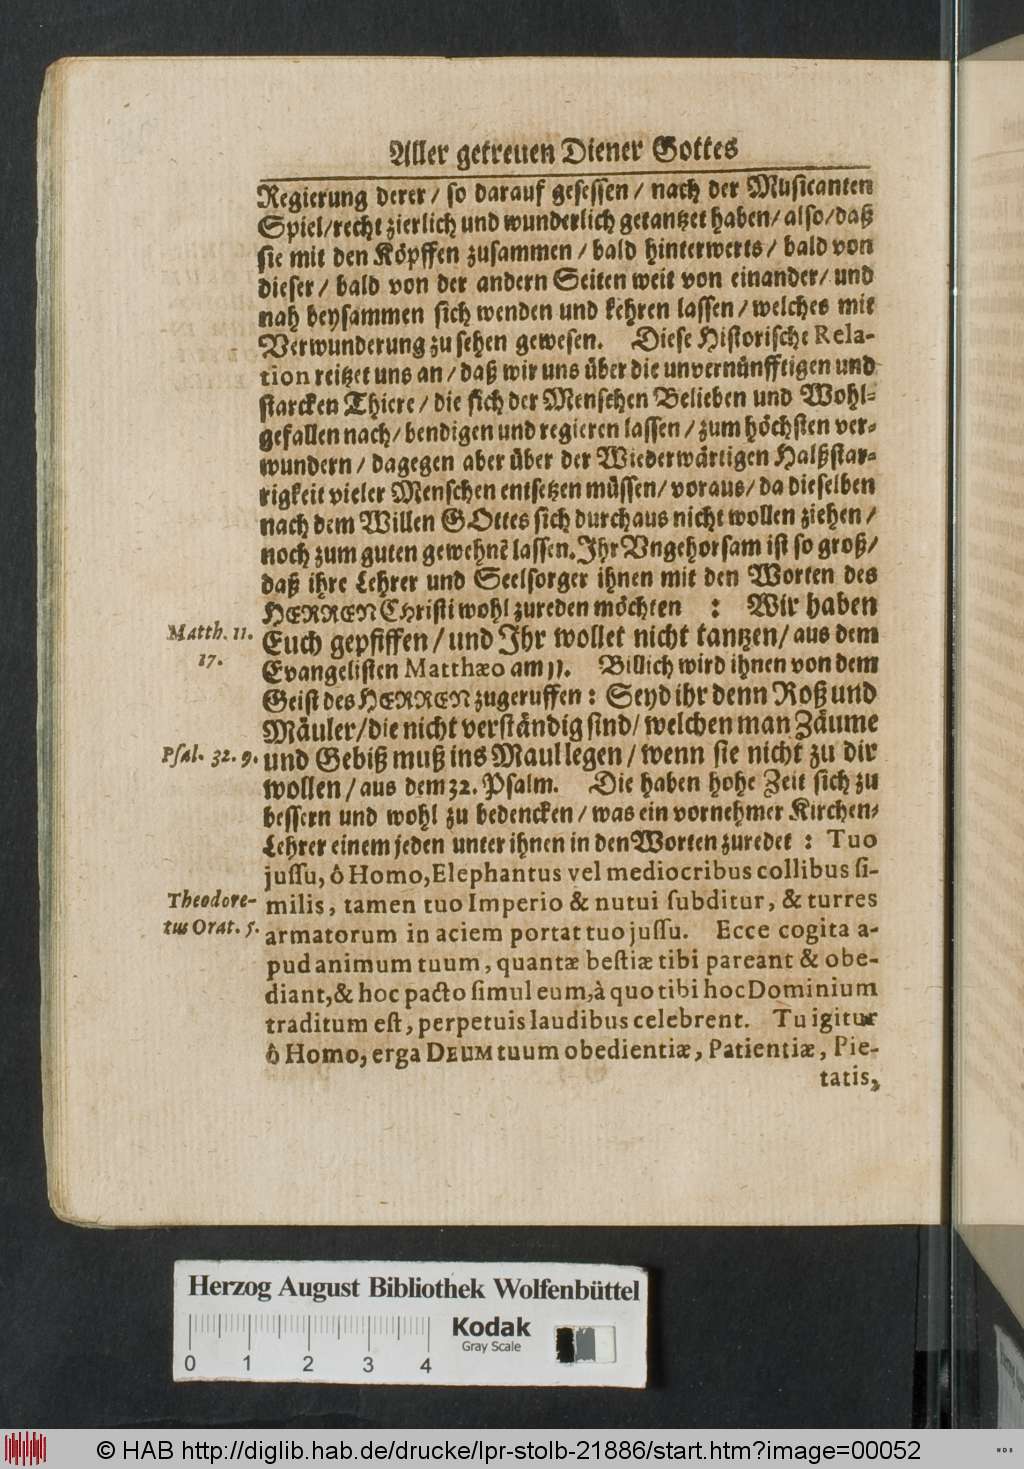 Aller getreuen Diener Gottes
Regierung derer / so darauf gesessen / nach der Musicanten
Spiel/recht zierlich und wunderlich getantzet haben/ also/daß
sie mit den Köpffen zusammen / bald hinterwerts / bald von
dieser / bald von der andern Seiten weit von einander/ und
nah beysammen sich wenden und kehren lassen / welches mit
Verwunderung zu sehen gewesen. Diese Historische Rela-
tion reitzet uns an / daß wir uns über die unvernünfftigen und
starcken Thiere / die sich der Menschen Belieben und Wohl-
gefallen nach/ bendigen und regieren lassen / zum höchsten ver-
wundern / dagegen aber über der Wiederwärtigen Halßstar-
rigkeit vieler Menschen entsetzen müssen/ voraus/ da dieselben
nach dem Willen GOttes sich durchaus nicht wollen ziehen /
noch zum guten gewehnẽ lassen. Ihr Vngehorsam ist so groß/
daß ihre Lehrer und Seelsorger ihnen mit den Worten des
HERREN CHristi wohl zureden möchten : Wir haben
Matth. 11. Euch gepfiffen / und Ihr wollet nicht tantzen/ aus dem
17. Evangelisten Matthæo am 11. Billich wird ihnen von dem
Geist des HERREN zugeruffen : Seyd ihr denn Roß und
Mäuler/die nicht verständig sind/ welchen man Zäume
Psal. 32. 9. und Gebiß muß ins Maul legen / wenn sie nicht zu dir
wollen / aus dem 32. Psalm. Die haben hohe Zeit sich zu
bessern und wohl zu bedencken / was ein vornehmer Kirchen-
Lehrer einem jeden unter ihnen in den Worten zuredet : Tuo
jussu, ô Homo, Elephantus vel mediocribus collibus si-
Theodore- milis, tamen tuo Imperio & nutui subditur, & turres
tus Orat. 5. armatorum in aciem portat tuo jussu. Ecce cogita a-
pud animum tuum, quantæ bestiæ tibi pareant & obe-
diant, & hoc pacto simul eum, à quo tibi hoc Dominium
traditum est, perpetuis laudibus celebrent. Tu igitur
ô Homo, erga DEUM tuum obedientiæ, Patientiæ, Pie-
tatis,
Herzog August Bibliothek Wolfenbüttel
Kodak
Gray Scale
0 1 2 3 4
© HAB http://diglib.hab.de/drucke/lpr-stolb-21886/start.htm?image=00052